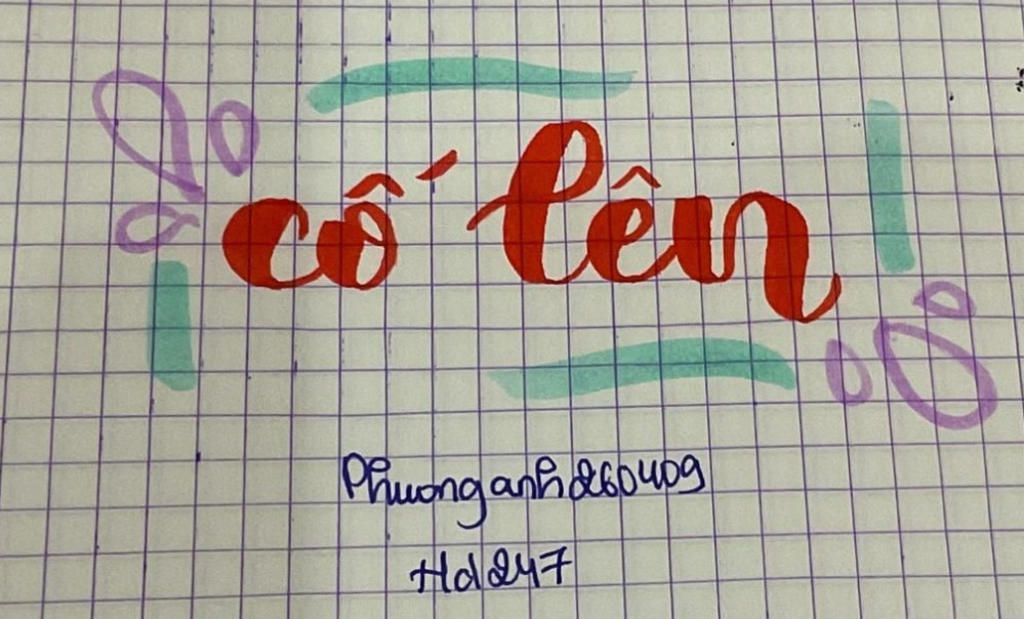 cố lên
Phuonganh260409
Hd247